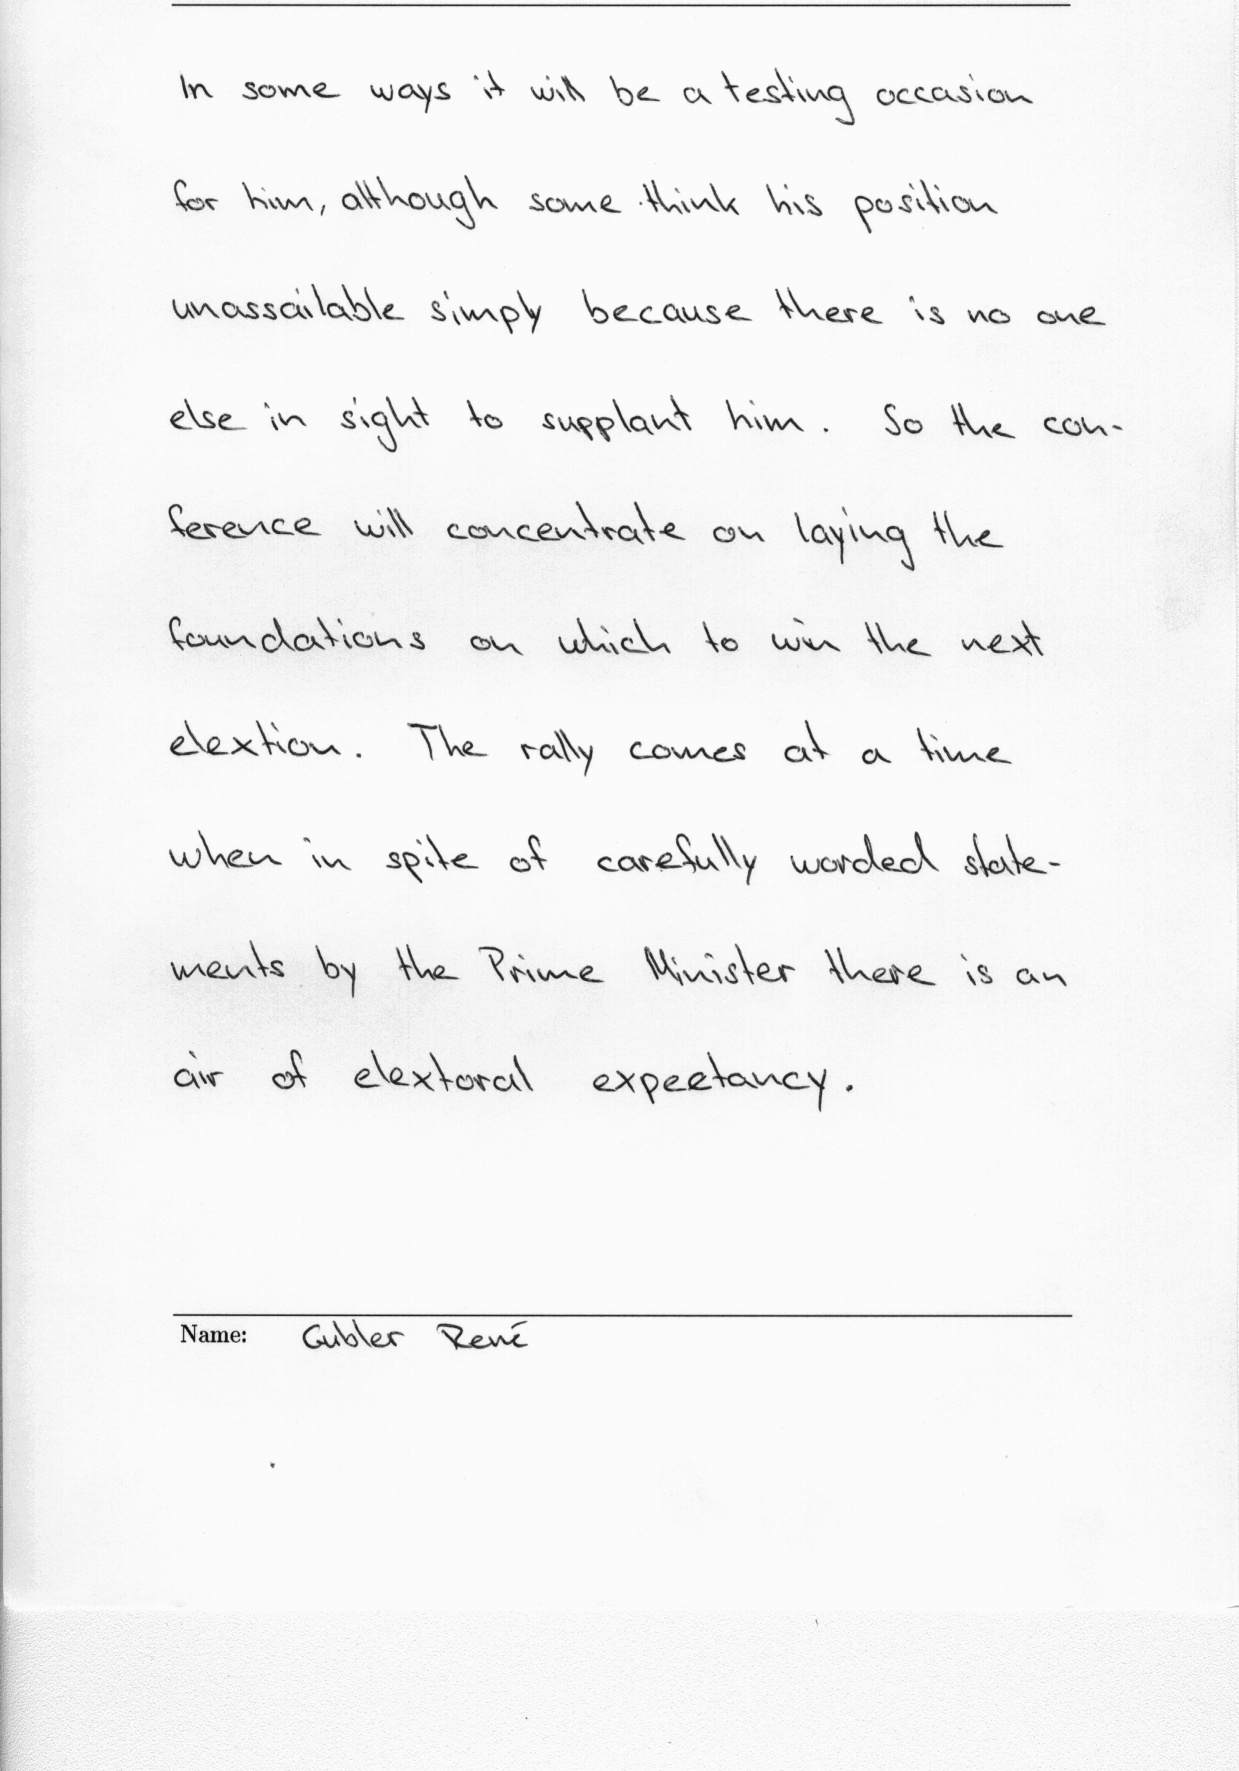 In some ways it will be a testing occasion
for him, although some think his position
unassailable simply because there is no one
else in sight to supplant him. So the con-
ference will concentrate on laying the
foundations on which to win the next
elextion. The rally comes at a time
when in spite of carefully worded state-
ments by the Prime Minister there is an
air of elextoral expectancy.
Name: Gubler René